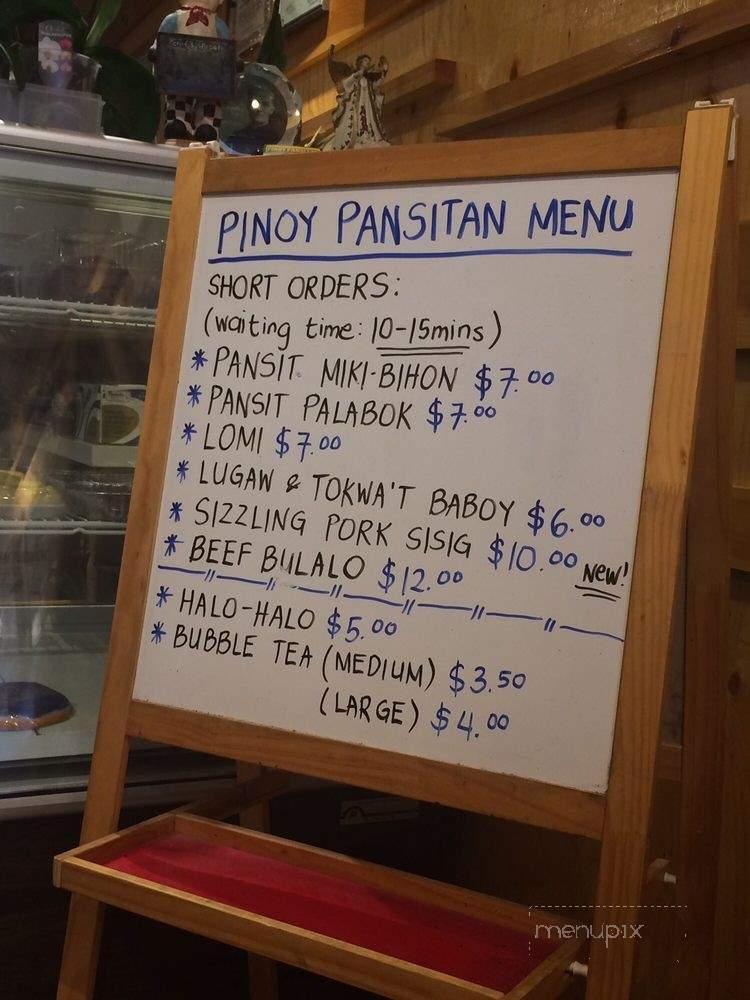 PINOY PANSITAN MENU
SHORT ORDERS:
(waiting time: 10-15mins)
* PANSIT MIKI-BIHON $7.00
* PANSIT PALABOK $7.00
* LOMI $7.00
* LUGAW & TOKWA'T BABOY $6.00
* SIZZLING PORK SISIG $10.00
* BEEF BULALO $12.00 New!
* HALO-HALO $5.00
* BUBBLE TEA (MEDIUM) $3.50
(LARGE) $4.00
menupix